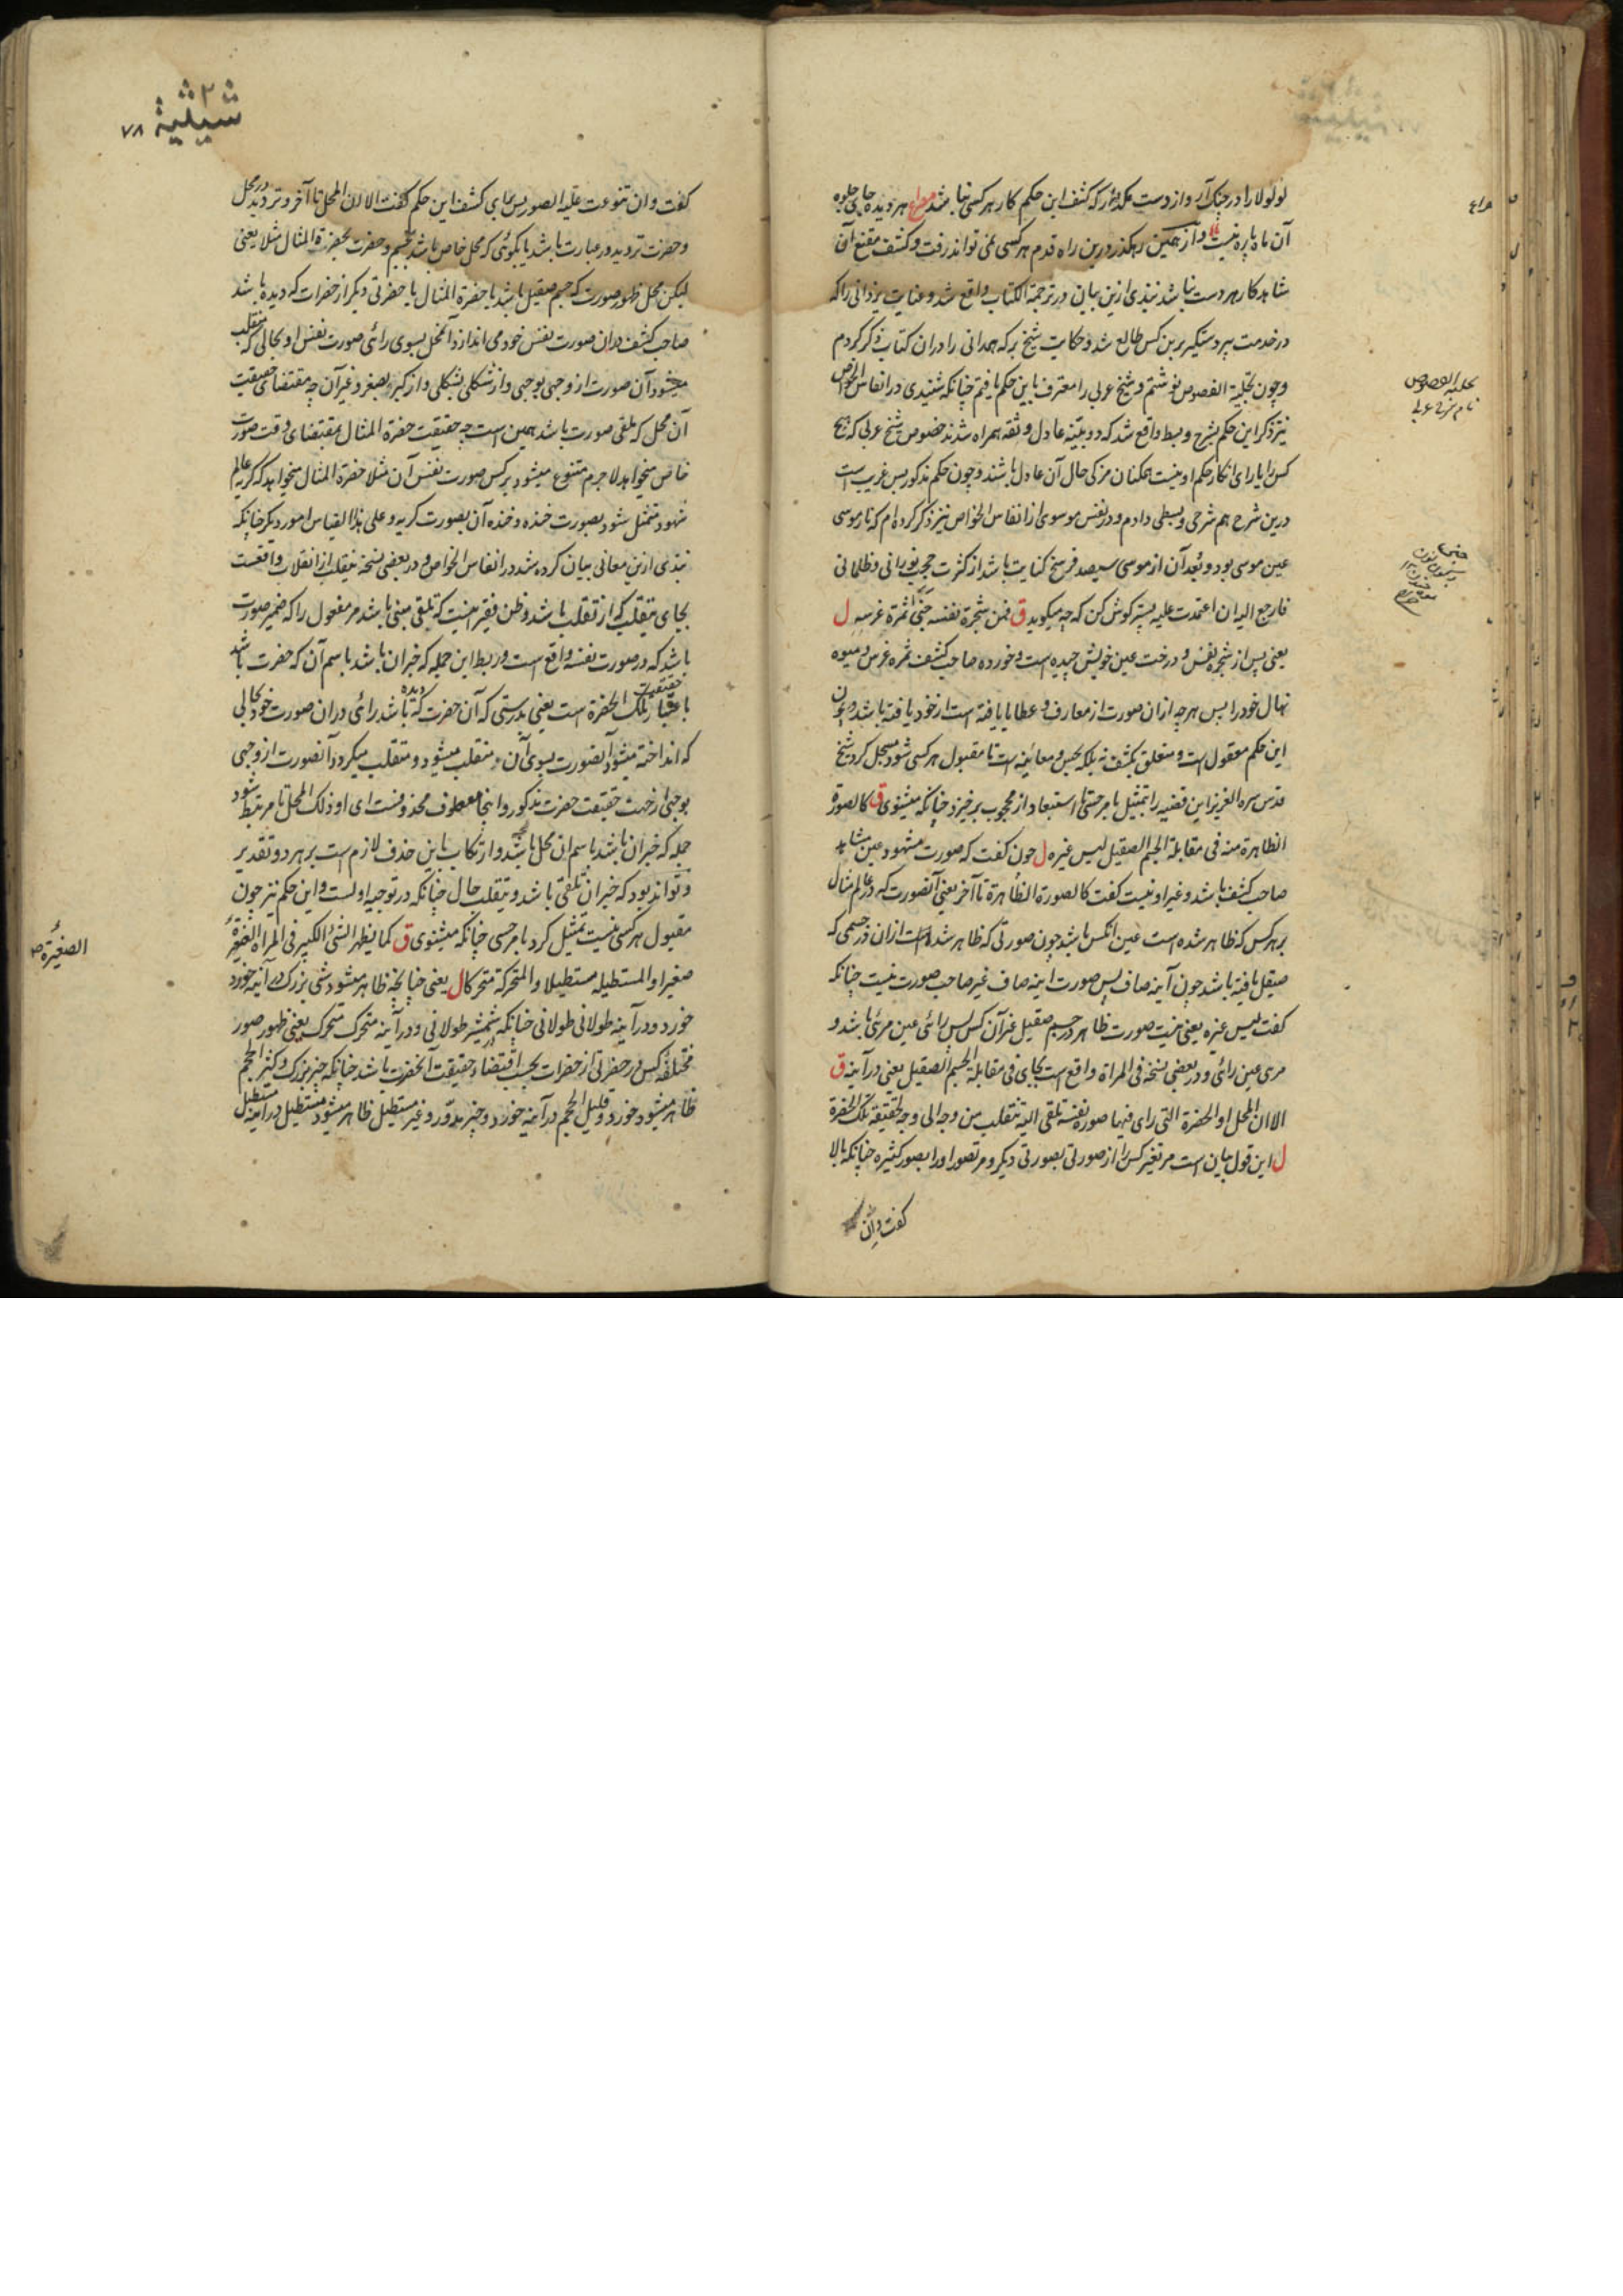 لولولا را در چنگ آر و از دست مگذار که کشف این حکم کار هر کسی نباشد مصراع هر دیده جای جلوه
آن ماه پاره نیست و از همین رهگذر درین راه قدم هر کسی نمی تواند رفت و کشف مقنع آن
شاهد کار هر دست نباشد نبذی ازین بیان در ترجمة الکتاب واقع شد و عنایت یزدانی را که
در خدمت پیر دستگیر برین کس طالع شد و حکایت شیخ برکه همدانی را در آن کتاب ذکر کردم
و چون تجلیة الفصوص نوشتم و شیخ عربی را معترف باین حکم یافتم چنانکه شنیدی در انفاس الخواص
نیز ذکر این حکم بشرح و بسط واقع شد که دو بینه عادل و ثقه همراه شدند خصوص شیخ عربی که هیچ
کس را یارای انکار حکم او نیست همکنان مزکی حال آن عادل باشند و چون حکم مذکور بس غریب است
درین شرح هم شرحی و بسطی دادم و در نفس موسوی از انفاس الخواص نیز ذکر کرده ام که نار موسی
عین موسی بود و بُعد آن از موسی سیصد فرسخ کنایت باشد از کثرت حجب نورانی و ظلمانی
فارجع الیه ان اعتمدت علیه پستر گوش کن که چه میگوید ق فمن شجرة نفسه جنی ثمرة غرسه ل
یعنی پس از شجره نفس و درخت عین خویش چیده است و خورده صاحب کشف ثمره غرس و میوه
نهال خود را پس هر چه ازان صورت از معارف و عطایا یافته است از خود یافته باشد و چون
این حکم معقول است و متعلق بکشف نه بلکه بحس و معائنه است تا مقبول هر کسی شود مسجل کرد شیخ
قدس سره العزیز این قضیه را بتمثیل بامر حسی تا استبعاد از محجوب برخیزد چنانکه میشنوی ق کالصورة
الظاهرة منه فی مقابلة الجسم الصقیل لیس غیره ل چون گفت که صورت مشهود عین مشاهد
صاحب کشف باشد و غیر او نیست گفت کالصورة الظاهرة تا آخر یعنی آنصورت که در عالم مثال
بر هر کس که ظاهر شده است عین آنکس باشد چون صورتی که ظاهر شده است ازان در جسمی که
صیقل یافته باشد چون آینه صاف پس صورت آینه صاف غیر صاحب صورت نیست چنانکه
گفت لیس غیره یعنی نیست صورت ظاهر در جسم صقیل غیر آن کس پس رائی عین مرئی باشد و
مری عین رائی و در بعضی نسخه فی المراة واقع است بجای فی مقابلة الجسم الصقیل یعنی در آینه ق
الا ان المحل او الحضرة التی رای فیها صورة نفسه تلقی الیه تنقلب من وجه الی وجه لحقیقة تلک الحضرة
ل این قول بیان است مر تغیر کس را از صورتی بصورتی دیگر و مر تصور او را بصور کثیره چنانکه بالا
گفت و ان
تجلیة الفصوص
شیثیة ٧٨
گفت و ان تنوعت علیه الصور پس برای کشف این حکم گفت الا ان المحل تا آخر و تردید در محل
و حضرت تردید در عبارت باشد یا بگوئی که محل خاص باشد بجسم و حضرت بحضرة المثال مثلا یعنی
لیکن محل ظهور صورت که جسم صقیل باشد یا حضرة المثال یا حضرتی دیگر از حضرات که دیده باشد
صاحب کشف در ان صورت نفس خود می اندازد آنمحل بسوی رائی صورت نفس او بحالی که منقلب
میشود آن صورت از وجهی بوجهی و از شکلی بشکلی و از کبر بصغر و غیر آن چه مقتضای حقیقت
آن محل که ملقی صورت باشد همین است چه حقیقت حضرة المثال بمقتضای وقت صورت
خاص میخواهد لا جرم متنوع میشود بر کس صورت نفس آن مثلا حضرة المثال میخواهد که گریه عالم
شهود متمثل شود بصورت خنده و خنده آن بصورت گریه و علی هذا القیاس امور دیگر چنانکه
نبذی ازین معانی بیان کرده شد در انفاس الخواص و در بعضی نسخه ینقلب از انقلاب واقعست
بجای یتقلب که از تقلب باشد و ظن فقیر اینست که تلقی مبنی باشد مر مفعول را که ضمیر صورت
باشد که در صورت نفسه واقع است و ربط این جمله که خبر ان باشد باسم آن که حضرت باشد
باعتبار حقیقت تلک الحضرة است یعنی بدرستی که آن حضرت که دیده باشد رائی در ان صورت خود بحالی
که انداخته میشود آنصورت بسوی آن منقلب میشود و متقلب میگردد آنصورت از وجهی
بوجهی از جهت حقیقت حضرت مذکور و اینجا معطوف محذوفست ای او ذلک المحل تا مرتبط شود
جمله که خبر ان باشد باسم ان که محل باشد و ارتکاب باین حذف لازم است بر هر دو تقدیر
و تواند بود که خبر ان تلقی باشد و یتقلب حال چنانکه در توجیه اولست و این حکم نیز چون
مقبول هر کسی نیست تمثیل کرد بامر حسی چنانکه میشنوی ق کما یظهر الشئ الکبیر فی المراة الصغیرة
صغیرا و المستطیلة مستطیلا و المتحرکة متحرکا ل یعنی چنانچه ظاهر میشود شی بزرگ در آینه خورد
خورد و در آینه طولانی طولانی چنانکه شمشیر طولانی و در آینه متحرک متحرک یعنی ظهور صور
مختلفه کس در حضرتی از حضرات بحسب اقتضاء حقیقت آنحضرت باشد چنانکه چیز بزرگ و کثیر الحجم
ظاهر میشود خورد و قلیل الحجم در آینه خورد و چیز مدور و غیر مستطیل ظاهر میشود مستطیل در آینه مستطیل
الصغیرة ص